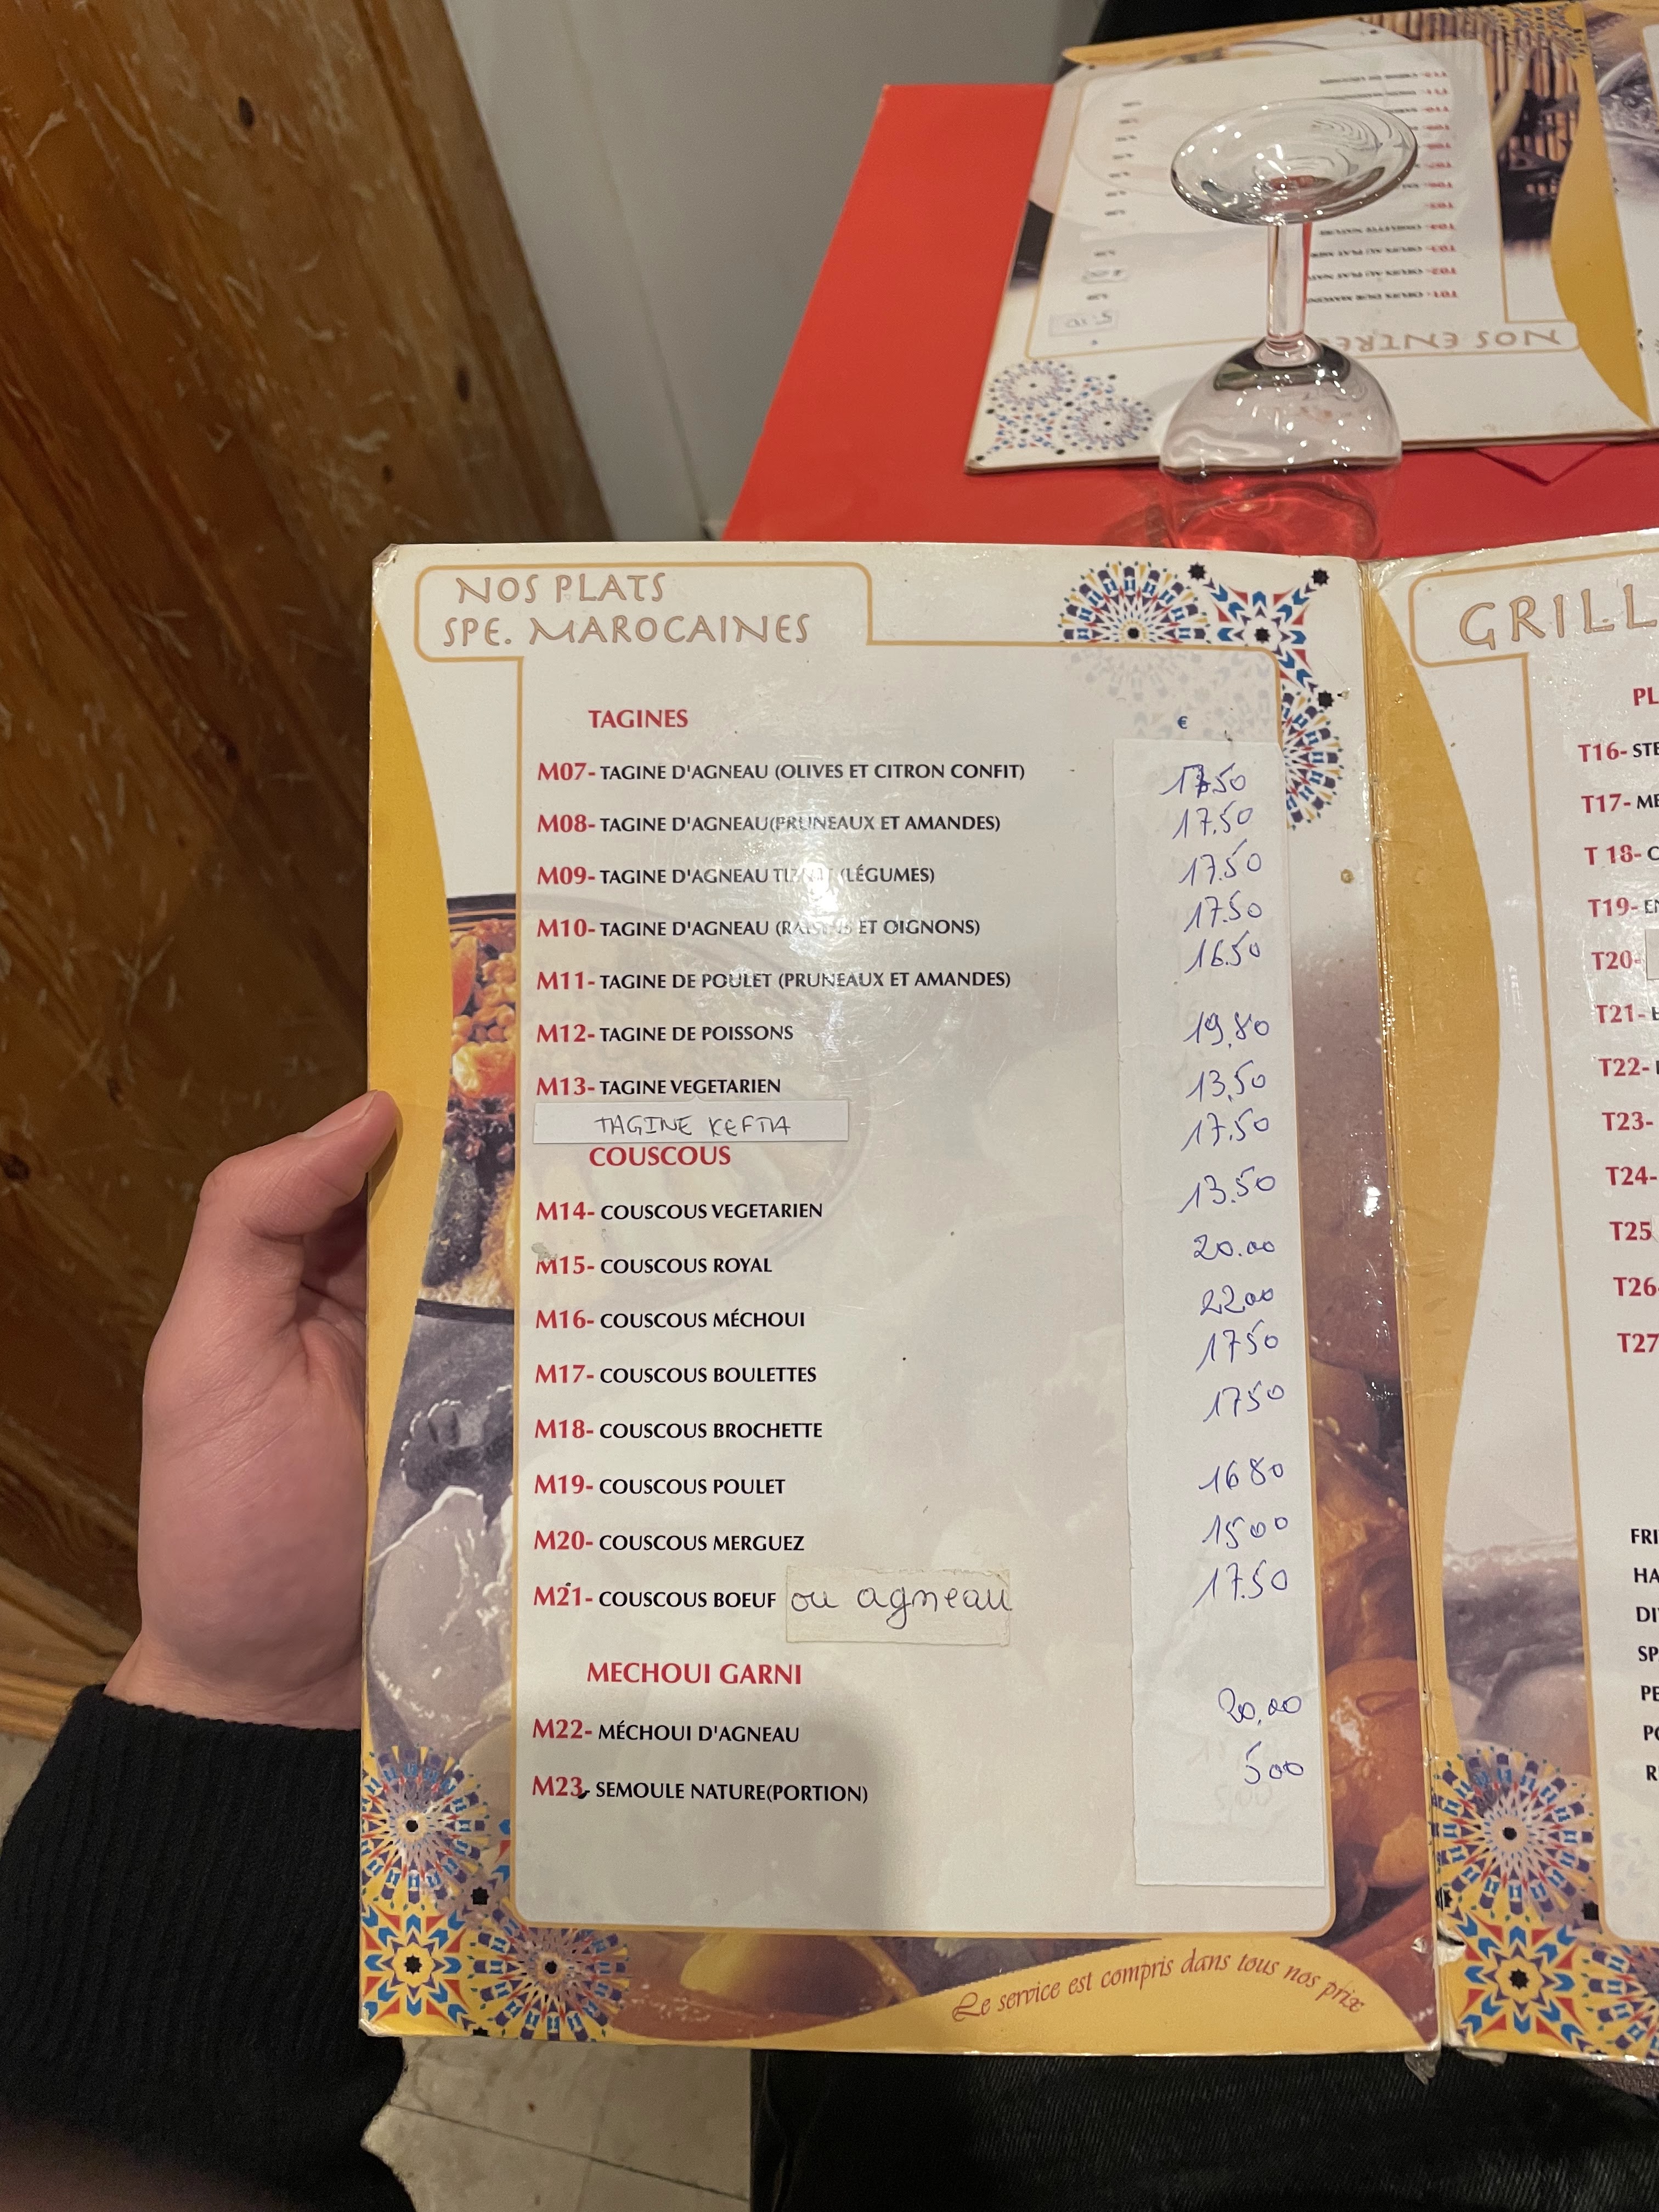 NOS PLATS
SPE. MAROCAINES
TAGINES €
M07- TAGINE D'AGNEAU (OLIVES ET CITRON CONFIT) 17.50
M08- TAGINE D'AGNEAU(PRUNEAUX ET AMANDES) 17.50
M09- TAGINE D'AGNEAU (LÉGUMES) 17.50
M10- TAGINE D'AGNEAU (RAISINS ET OIGNONS) 17.50
M11- TAGINE DE POULET (PRUNEAUX ET AMANDES) 16.50
M12- TAGINE DE POISSONS 19,80
M13- TAGINE VEGETARIEN 13,50
TAGINE KEFTA 17.50
COUSCOUS
M14- COUSCOUS VEGETARIEN 13.50
M15- COUSCOUS ROYAL 20.00
M16- COUSCOUS MÉCHOUI 22 00
M17- COUSCOUS BOULETTES 17 50
M18- COUSCOUS BROCHETTE 17 50
M19- COUSCOUS POULET 16 80
M20- COUSCOUS MERGUEZ 15 00
M21- COUSCOUS BOEUF ou agneau 17.50
MECHOUI GARNI
M22- MÉCHOUI D'AGNEAU 20,00
M23- SEMOULE NATURE(PORTION) 5 00
Le service est compris dans tous nos prix
GRILL
T16- STE
T17- ME
T 18- C
T19- EN
T20-
T21-
T22-
T23-
T24-
T25
T26-
T27
FRI
HA
SP
PE
NOS ENTRE
T01- OEUFS DUR
T02- OEUFS AU PLAT
T03- OEUFS AU PLAT
T04- OMELETTE NATURE
5.10